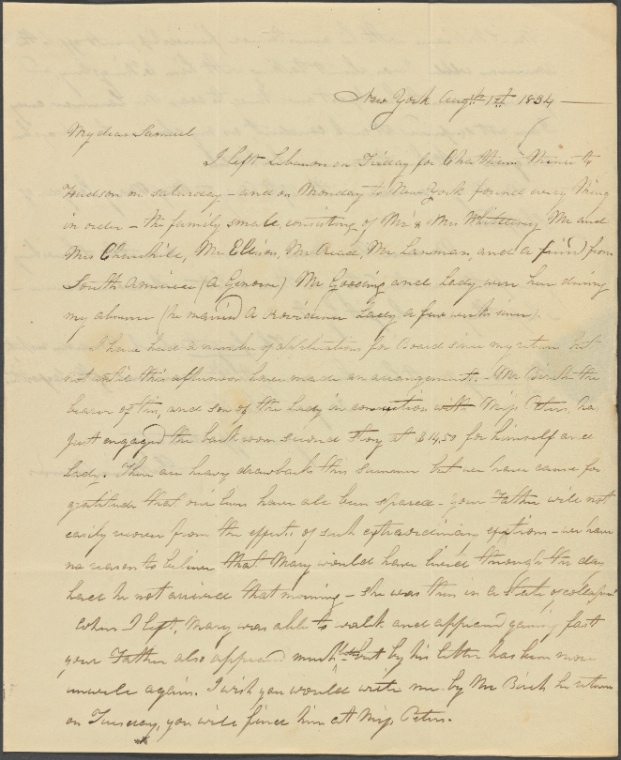 New York Augst 1st 1834 —
My dear Samuel
I left Lebanon on Friday for Chatham thence to
Hudson on Saturday – and on Monday to New York found every thing
in order – the family small, consisting of Mr & Mrs Mr and
Mrs Churchill, Mr Ellison, Mr Read, Mr Lanman, and a friend from
South America (A Genoese) Mr Gossing and Lady were here during
my absence (he married A Providence Lady a few weeks since)
I have had a number of applications for Board since my return but
not until this afternoon have made an arrangement. – Mr Birch the
bearer of this, and son of the Lady in connection with Miss Peters has
just engaged the back room second story at $14.50 for himself and
Lady. There are heavy drawbacks this summer but we have cause for
gratitude that our lives have all been spared – your Father will not
easily recover from the effects of such extraordinary exertions – we have
no reason to believe that Mary would have lived through the day
had he not arrived that morning – she was then in a state of collapse
When I left, Mary was able to walk and appeared gaining fast
your Father also appeared much but by his letter has been more
unwell again. I wish you would write me by Mr Birch he returns
on Tuesday, you will find him at Miss Peters.